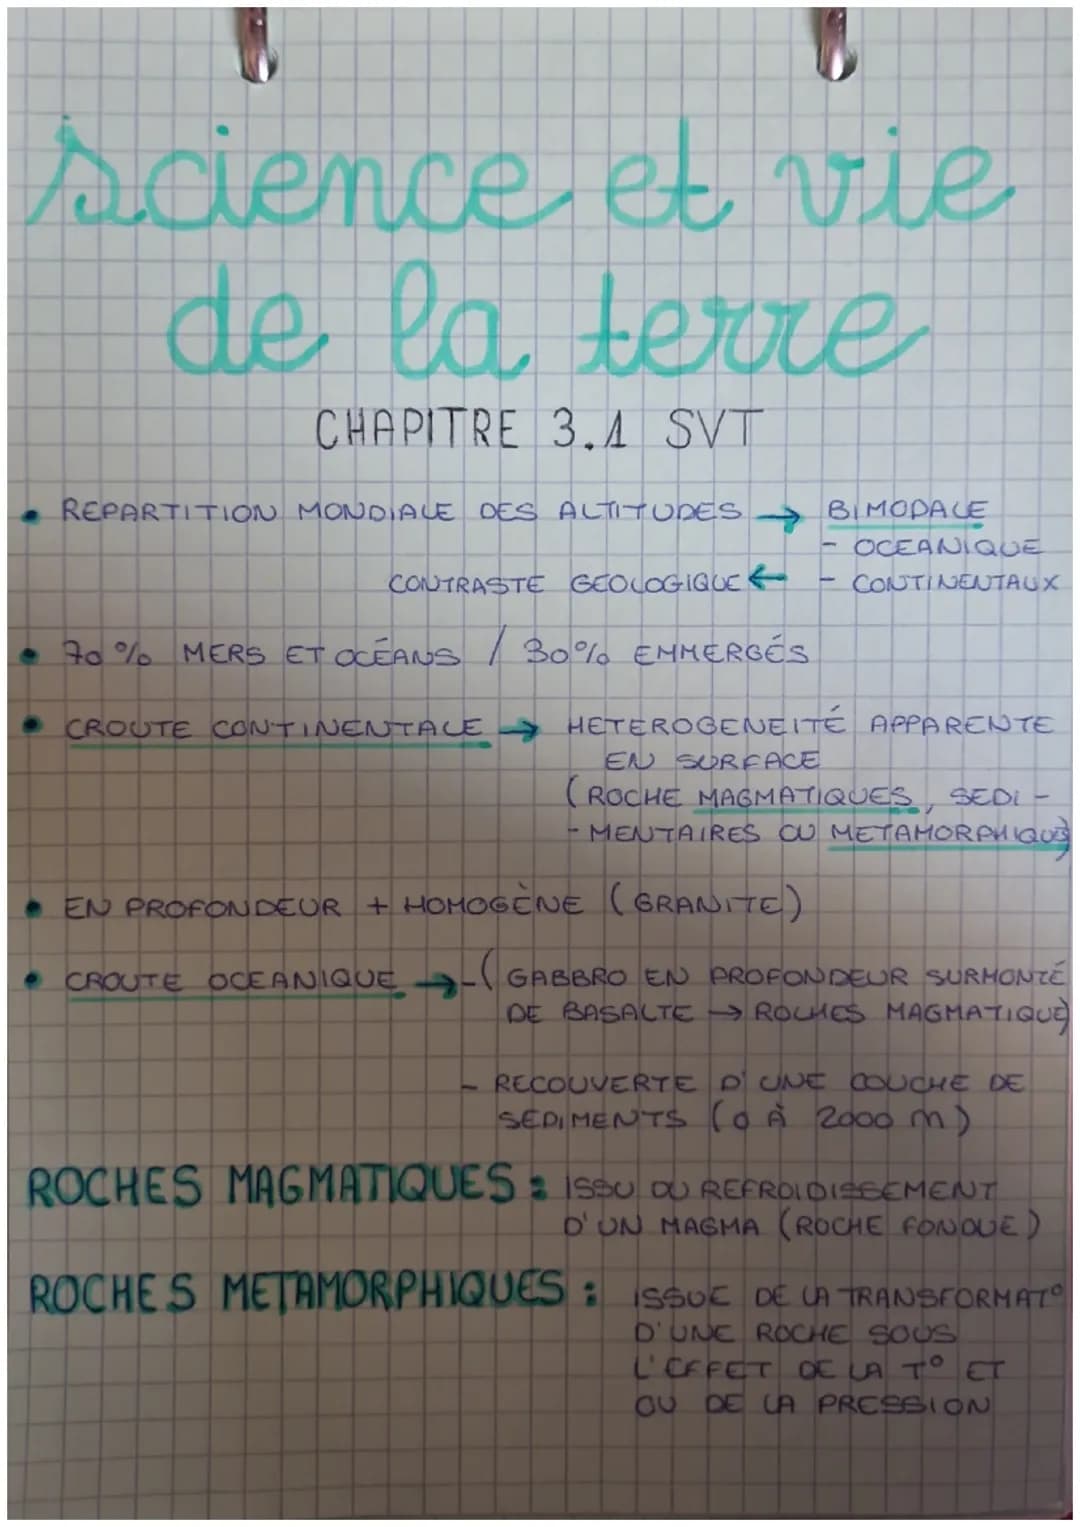 science et vie
de la terre
CHAPITRE 3.1 SVT
• REPARTITION MONDIALE DES ALTITUDES → BIMODALE
- OCEANIQUE
CONTRASTE GEOLOGIQUE ← - CONTINENTAUX
• 70 % MERS ET OCÉANS / 30% EMMERGÉS
• CROUTE CONTINENTALE → HETEROGENEITÉ APPARENTE
EN SURFACE
(ROCHE MAGMATIQUES, SEDI -
- MENTAIRES OU METAMORPHIQUE)
• EN PROFONDEUR + HOMOGÈNE (GRANITE)
• CROUTE OCEANIQUE → - (GABBRO EN PROFONDEUR SURMONTÉ
DE BASALTE → ROCHES MAGMATIQUE)
- RECOUVERTE D'UNE COUCHE DE
SEDIMENTS (0 À 2000 m)
ROCHES MAGMATIQUES : ISSU DU REFROIDISSEMENT
D'UN MAGMA (ROCHE FONDUE)
ROCHES METAMORPHIQUES : ISSUE DE LA TRANSFORMAT°
D'UNE ROCHE SOUS
L'EFFET DE LA T° ET
OU DE LA PRESSION